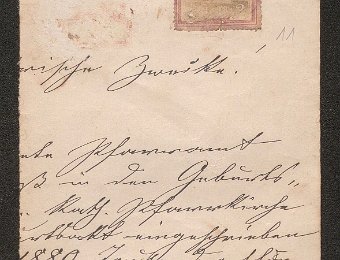 11
rische Zwecke!
te Pfarramt
ß in den Geburts„
Kath. Pfarrkirche
eingeschrieben